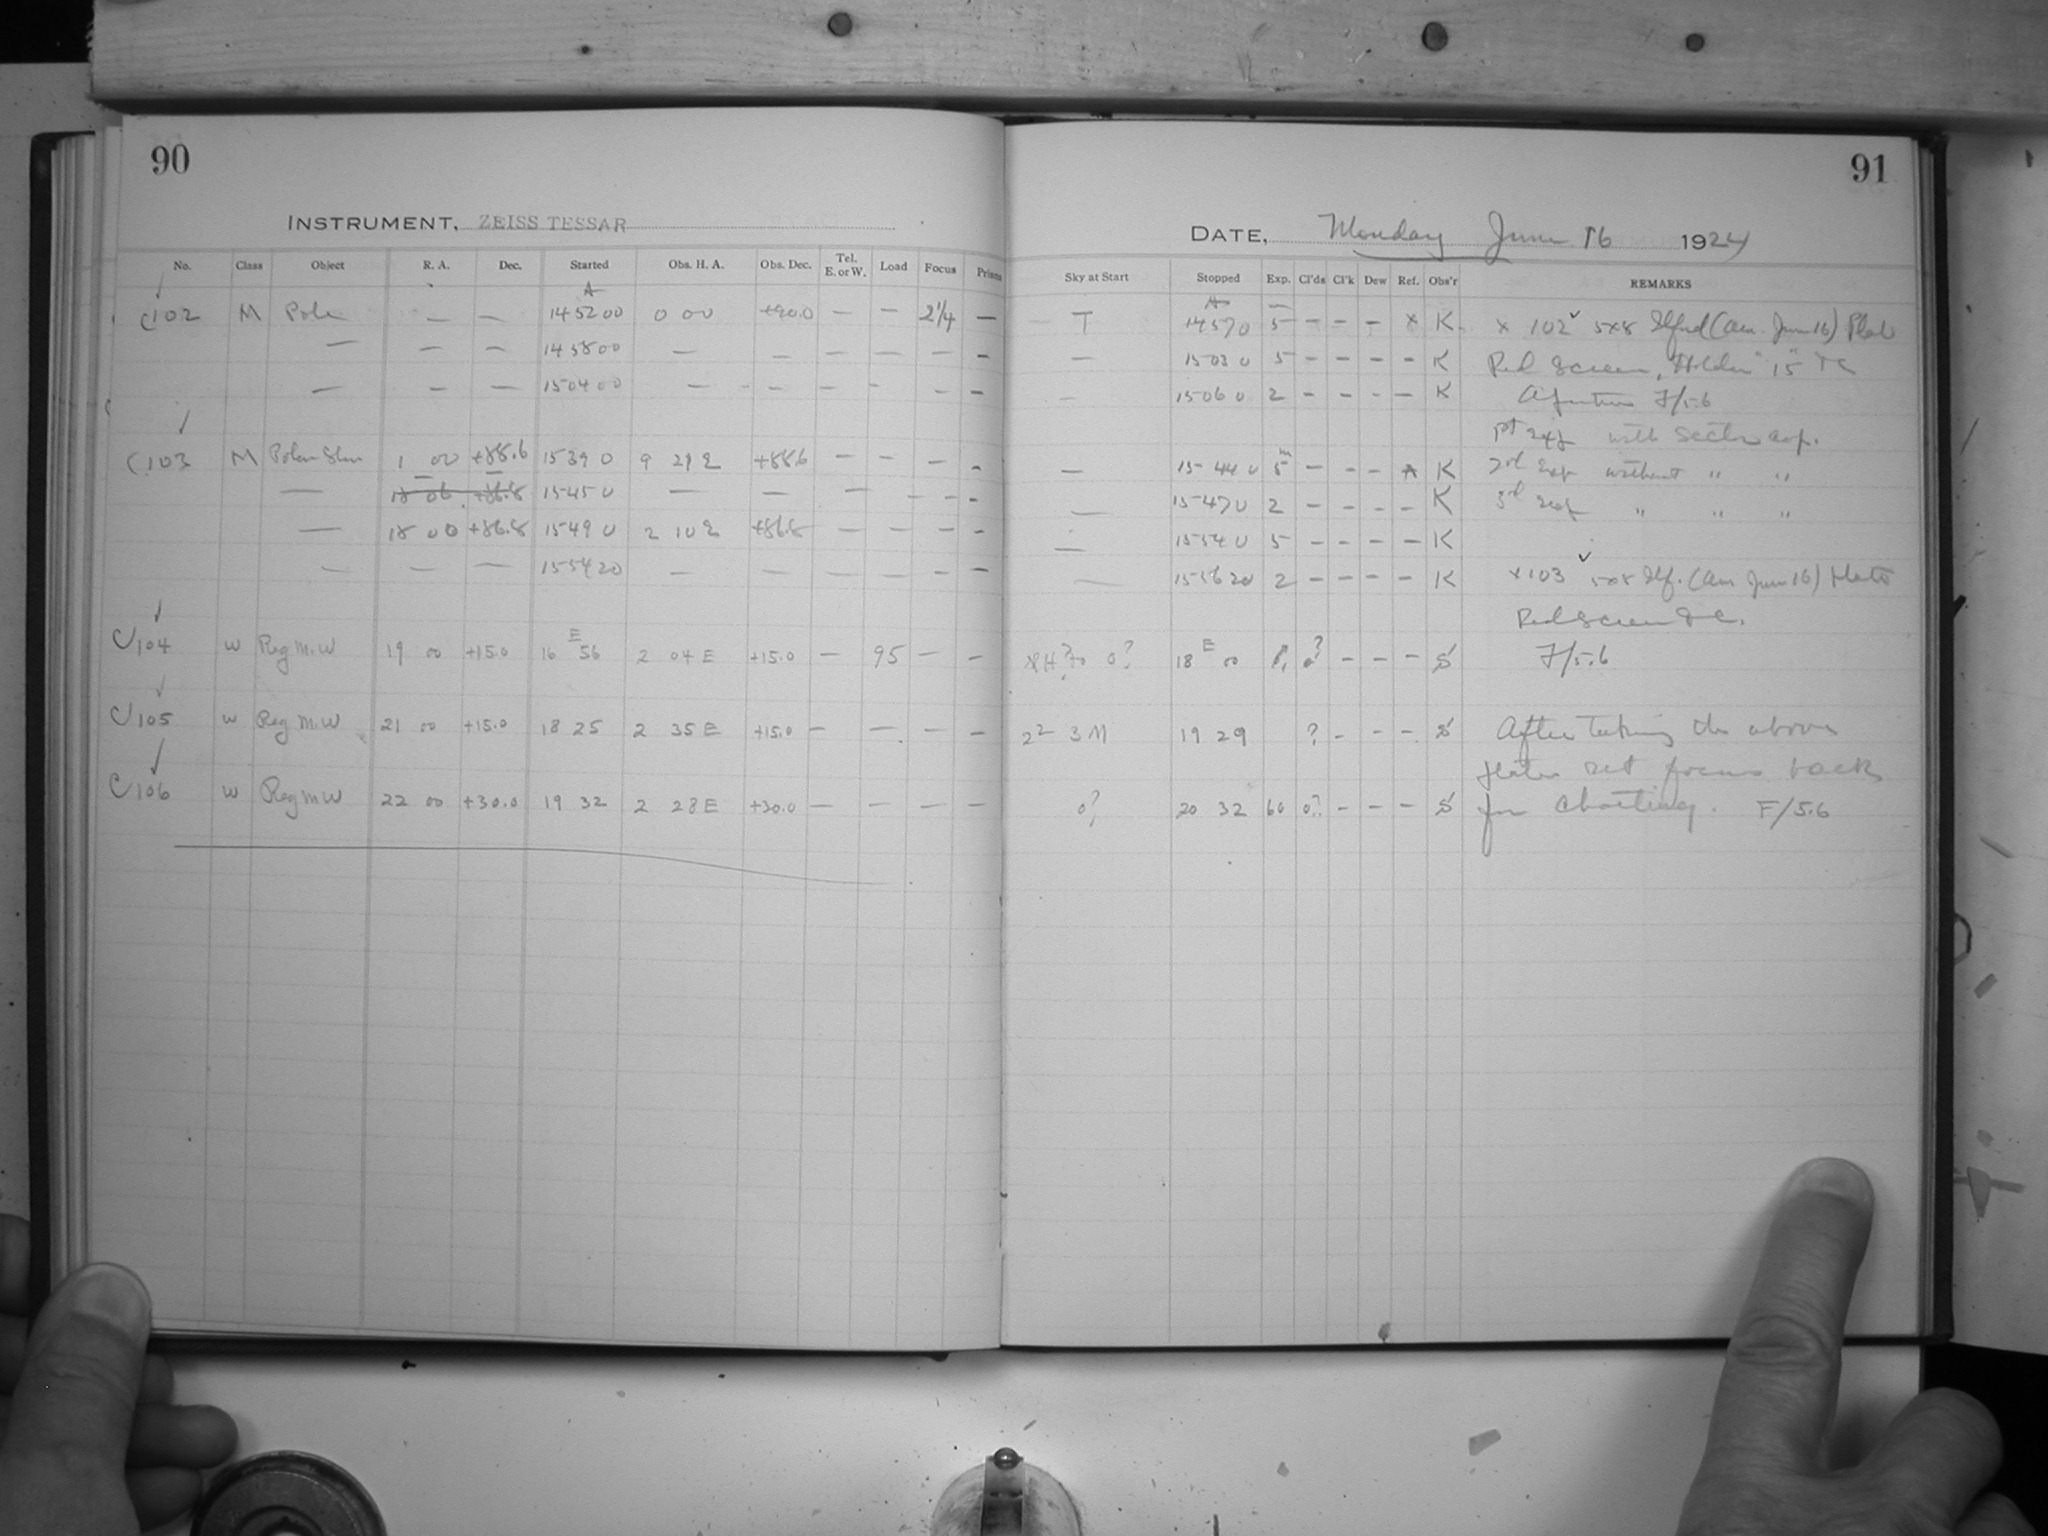 90
INSTRUMENT, ZEISS TESSAR
No. Class Object R. A. Dec. Started Obs. H. A. Obs. Dec. Tel. E. or W. Load Focus Prism
A
C102 M Pole — — 14 52 00 0 00 +90.0 — — 2 1/4 —
— — — 14 58 00 — — — — — —
— — — 15 04 00 — — — — — —
C103 M 1 00 +88.6 15 39 0 +88.6 — — — —
— 18 06 +86.8 15 45 0 — — — — — —
— 18 00 +86.8 15 49 0 +86.8 — — — —
— — — 15 54 20 — — — — — —
E
C104 w Reg M.W 19 00 +15.0 16 56 2 04 E +15.0 — 95 — —
C105 w Reg M.W 21 00 +15.0 18 25 2 35 E +15.0 — — — —
C106 w Reg M.W 22 00 +30.0 19 32 2 28 E +30.0 — — — —
91
DATE, Monday June 16 1924
Sky at Start Stopped Exp. Cl'ds Cl'k Dew Ref. Obs'r REMARKS
T 14 57 0 5 – – – x K. x 102 5x8 Ilford (Am. June 16) Plate
— 15 03 0 5 – – – – K Red Screen, "Holder" 15
– 15 06 0 2 – – – – K F/5.6
with Sector
— 15 44 0 5 – – – K 2nd exp without " "
— 15 47 0 2 – – – – K 3d exp " " "
— 15 54 0 5 – – – – K
— 15 56 20 2 – – – – K x103 5x8 Ilf. (Am June 16) Plate
Red Screen
E
18 00 – – – S F/5.6
19 29 ? – – – S After taking the above
plates set focus back
0? 20 32 60 0? – – – S for charting. F/5.6